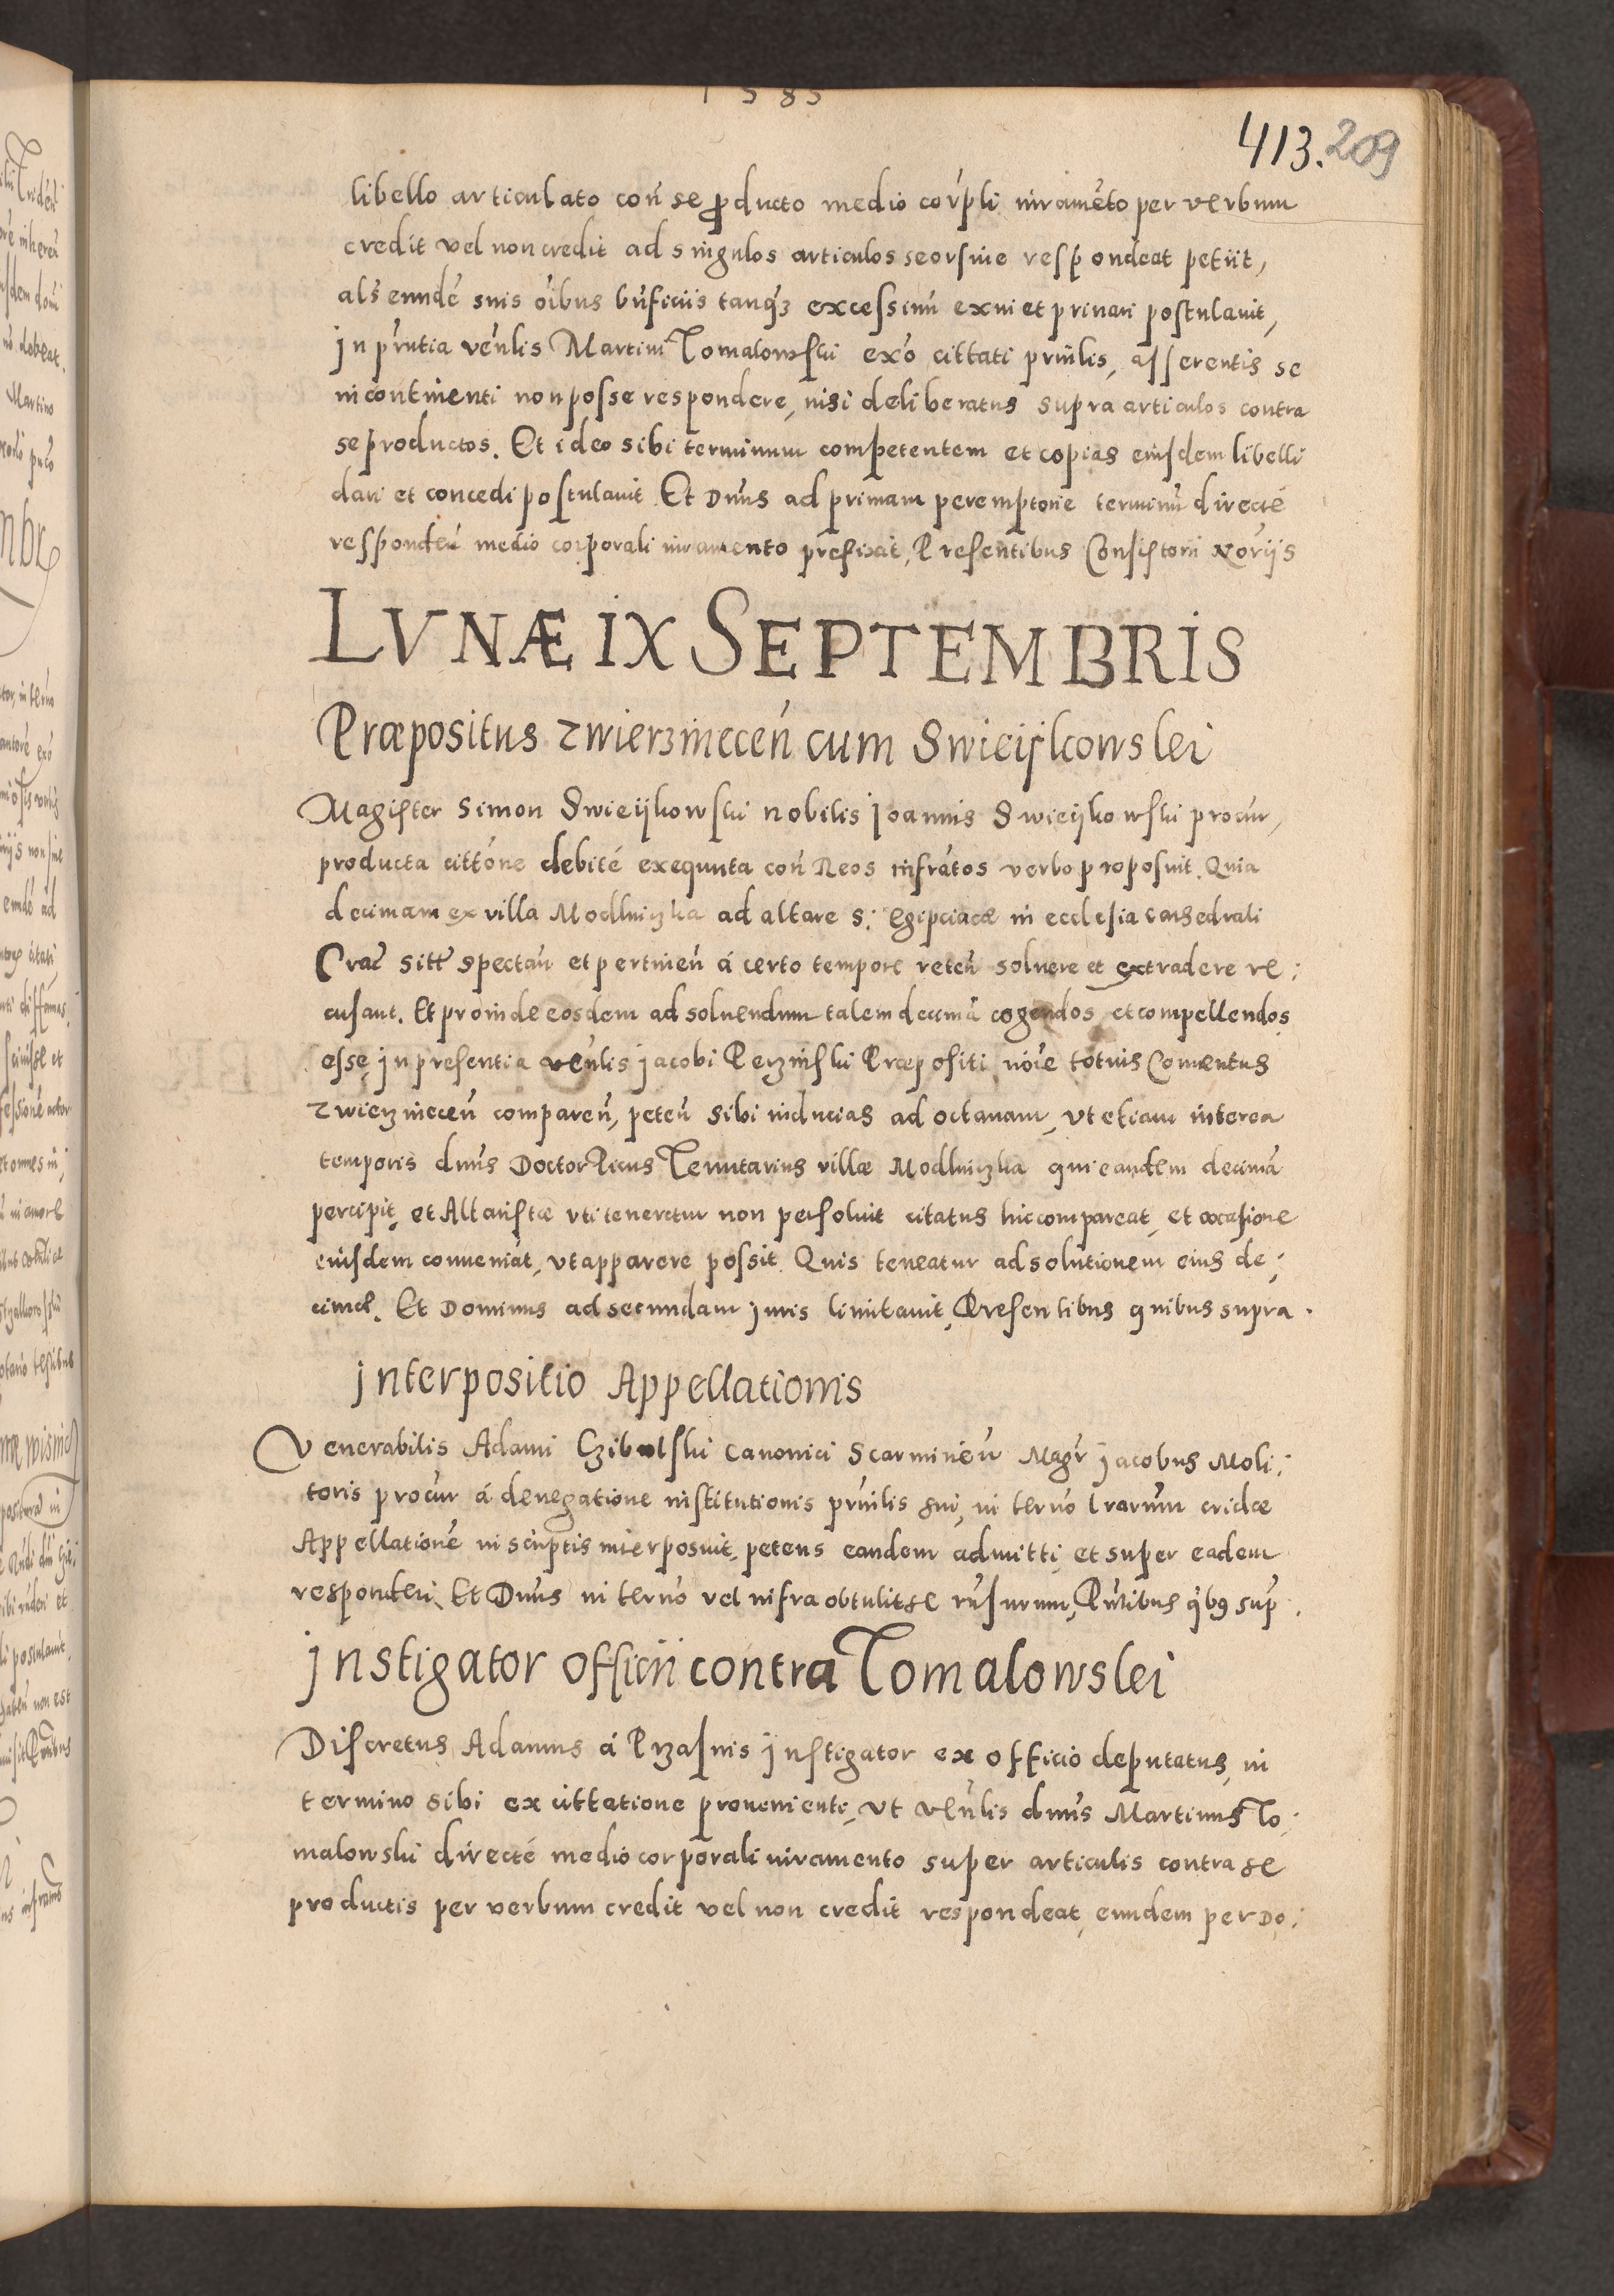 1585
413. 209
libello articulato coń se producto medio corṕli iuramẽto per verbum
credit vel non credit ad singulos articulos seorsiue respondeat petiit,
als eundẽ suis oĩbus bńficiis tanq̃ȝ excessiuũ exui et priuari postulauit,
jn pŕntia veńlis Martini Tomalowski exõ cittati prińlis, asserentis se
incontinenti non posse respondere, nisi deliberatus supra articulos contra
se productos. Et ideo sibi terminum competentem et copias eiusdem libelli
dari et concedi postulauit Et Dńus ad primam peremptorie terminũ directé
respondeń medio corporali iuramento prefixit, Presentibus Consistorii Norijs
LVNÆ IX SEPTEMBRIS
Præpositus Zwierzineceń cum Swieijkowskei
Magister Simon Swieijkowski nobilis Joannis Swieijkowski procur,
producta cittóne debité exequuta coń Reos infrátos verbo proposuit. Quia
decimam ex villa Modlniczka ad altare S: Egipciacæ in ecclesia cathedrali
Crać sitt spectań et pertineń á certo tempore reteń soluere et extradere re:
cusant. Et proinde eosdem ad soluendum talem decimã cogendos et compellendos
esse, jn presentia veńlis jacobi Perzinski Præpositi, nõie totius Conuentus
Zwierzineceń compareń, peteń sibi inducias ad octauam, vt etiam interea
temporis dńus Doctor Picus Tenutarius villæ Modlniczka qui eandem decimã
percipit, et Altaristæ vti teneretur non persoluit citatus hic compareat, et occasione
eiusdem conueniát, vt apparere possit Quis teneatur ad solutionem eius de:
cimæ. Et Dominus ad secundam juris limitauit, Presentibus quibus supra.
jnterpositio Appellationis
Venerabilis Adami Czibulski Canonici Scarmirień Magŕ jacobus Moli:
toris procur á denegatione institutionis prińilis sui, in terño lrarum cridæ
Appellationẽ in scriptis interposuit, petens eandem admitti, et super eadem
responderi, Et Dńus in terño vel infra obtulit se rńsurum, Pŕntibus qib9 sup̃.
jnstigator officii contra Tomalowskei
Discretus Adamus á Przasnis jnstigator ex officio deputatus, in
termino sibi ex cittatione proueniente, vt veńlis dńus Martinus To:
malowski directé medio corporali iuramento super articulis contra se
productis per verbum credit vel non credit respondeat, eundem per Do: